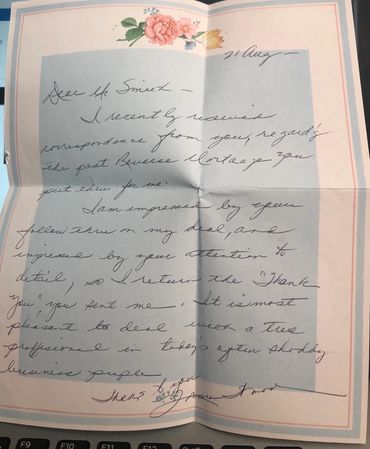 21 Aug -
Dear Mr Smith -
I recently received
correspondence from you, regard'g
the past Reverse Mortgage you
put thru for me.
I am impressed by your
follow thru on my deal, and
impressed by your attention to
detail, so I return the "Thank
You" you sent me. It is most
pleasant to deal with a true
proffisional in today's often shoddy
business people
Thank you
F9
F10
F11
F12